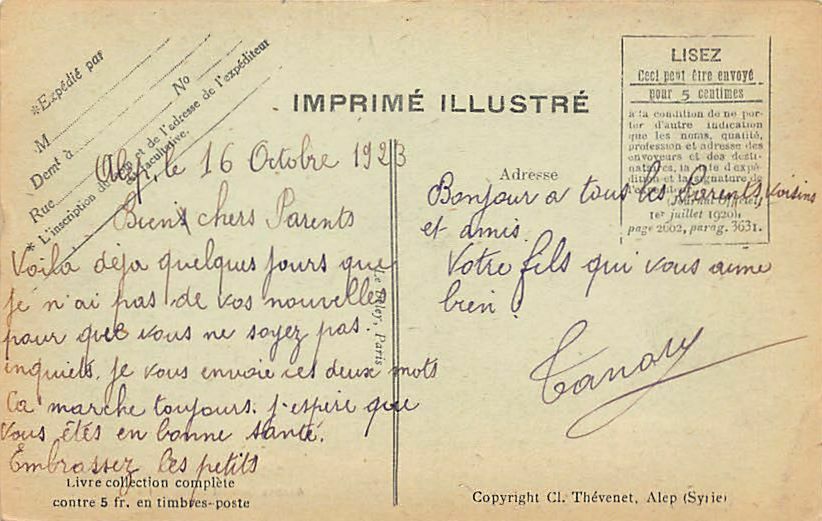 *Expédié par
M
No
Demt à
Rue
* L'inscription de et de l'adresse de l'expéditeur
facultative.
IMPRIMÉ ILLUSTRÉ
LISEZ
Ceci peut être envoyé
pour 5 centimes
à la condition de ne por-
ter d'autre indication
que les noms, qualité,
profession et adresse des
envoyeurs et des desti-
nataires, la date d'expé-
dition et la signature de
Journal Officiel
1er juillet 1920),
page 2602, parag. 3631.
Alep, le 16 Octobre 1923
Bien chers Parents
Voila déja quelques jours que
je n'ai pas de vos nouvelles
pour que vous ne soyez pas
inquiets. je vous envoie ces deux mots
Ca marche toujours. j'espère que
vous étés en bonne santé.
Embrassez les petits
Adresse
Bonjour a tous les Parents voisins
et amis.
Votre fils qui vous aime
bien.
Paris
Livre collection complète
contre 5 fr. en timbres-poste
Copyright Cl. Thévenet, Alep (Syrie)